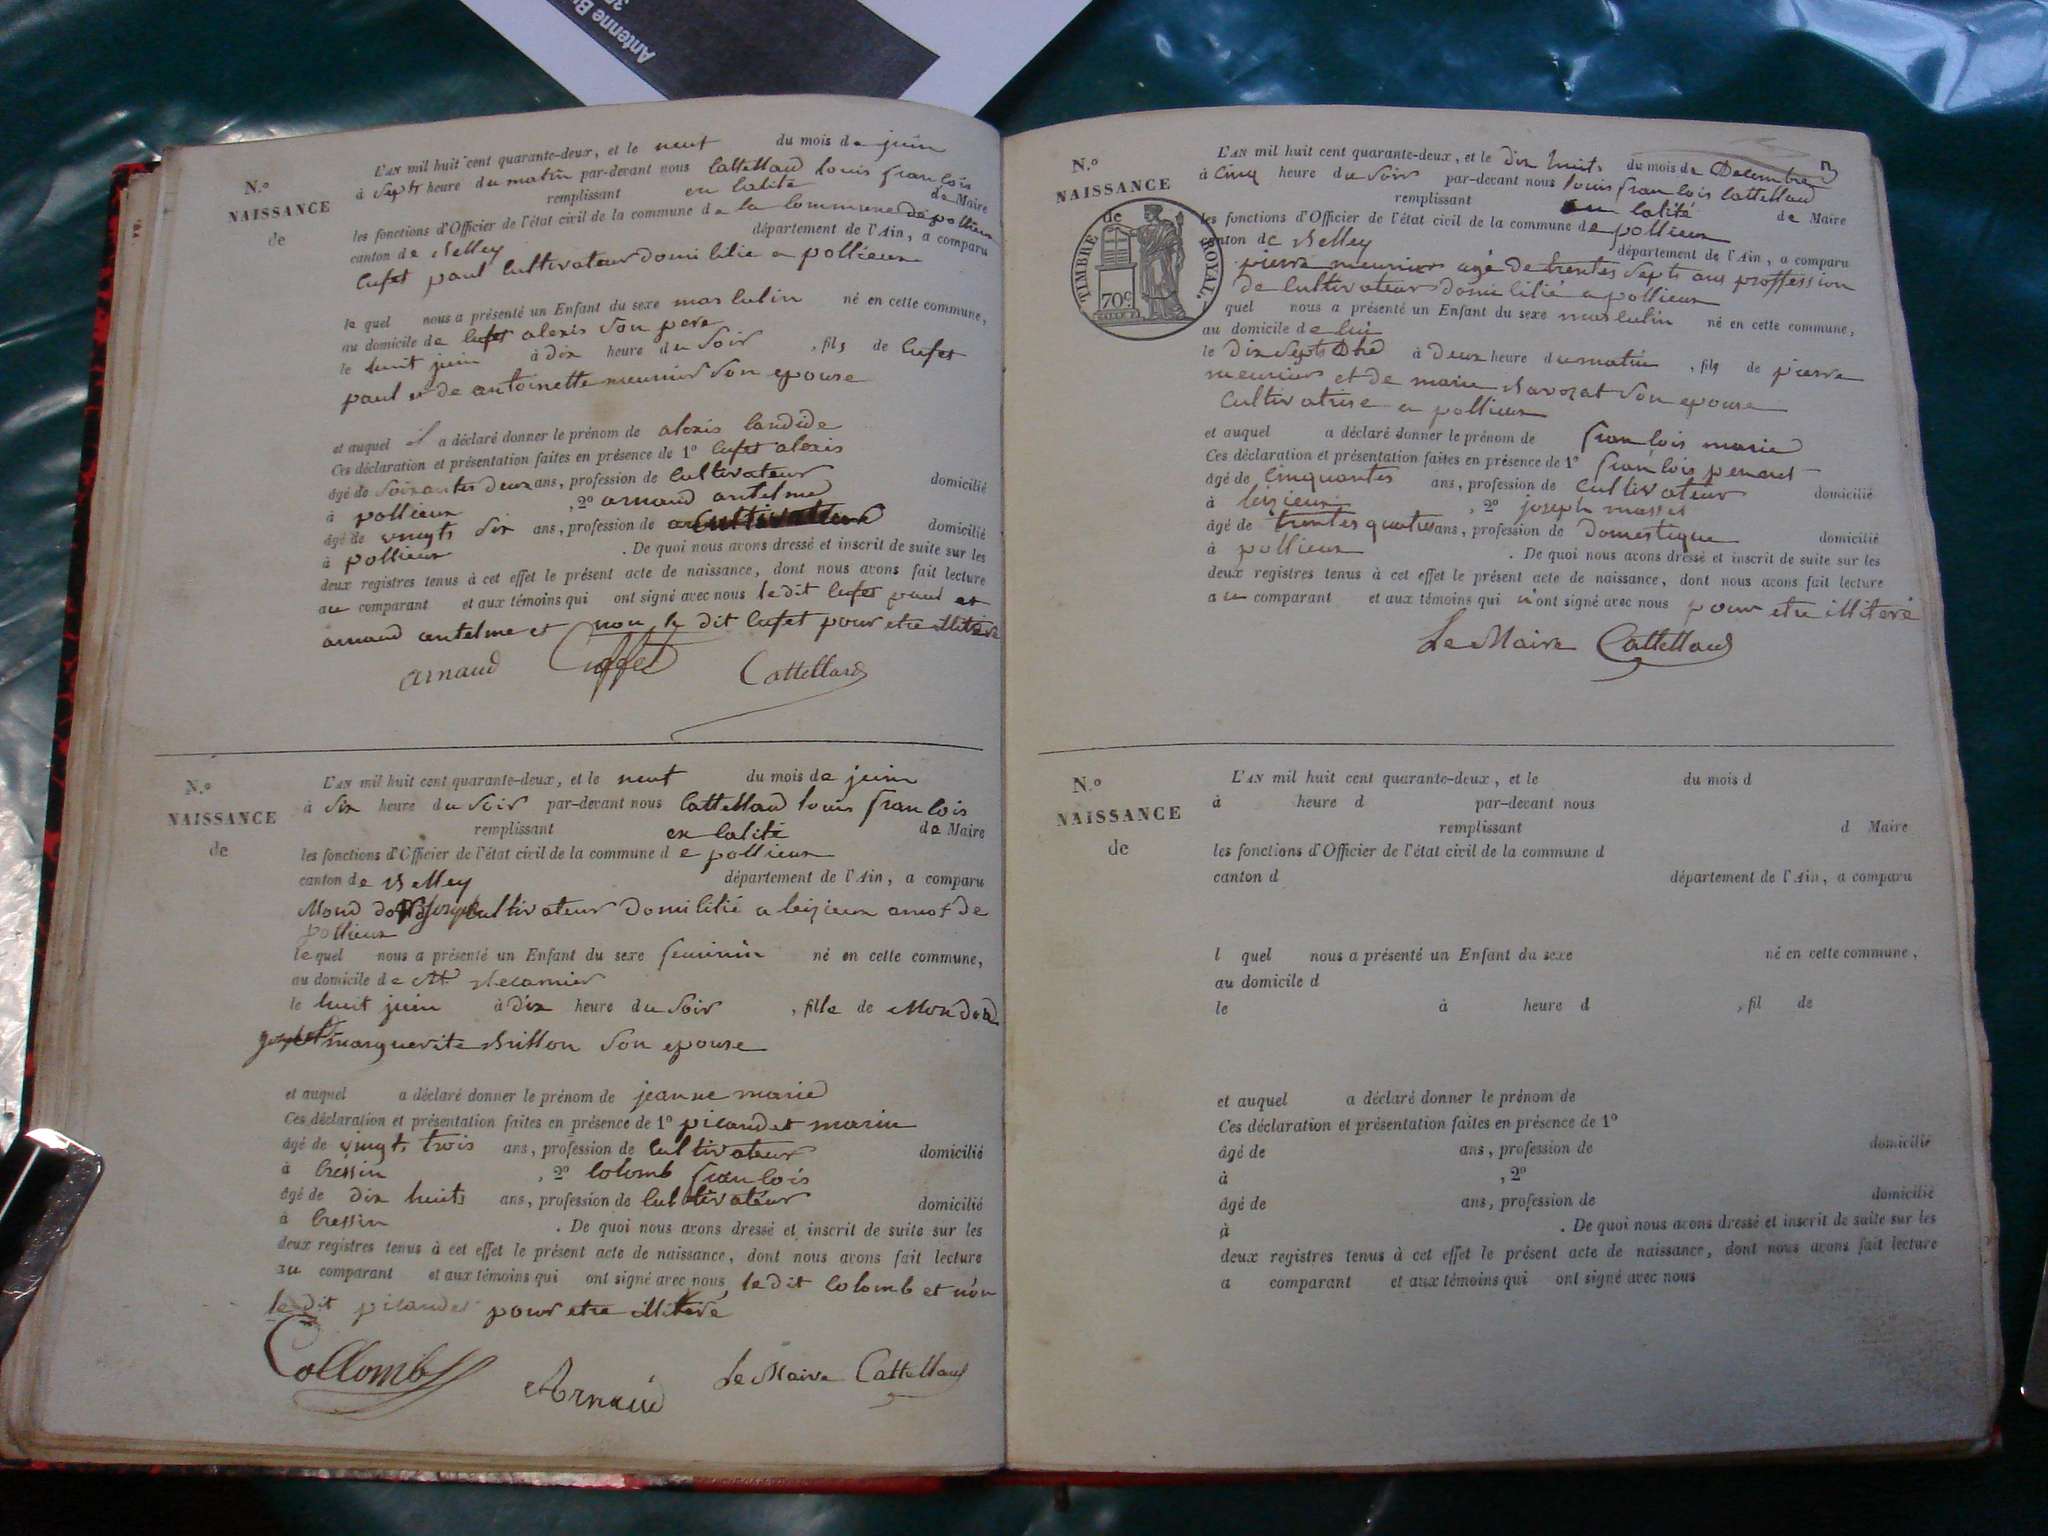 Antenne B
N.º
NAISSANCE
de
L'AN mil huit cent quarante-deux, et le neuf du mois de juin
à sept heure du matin par-devant nous Cattelland louis francois
remplissant en calité de Maire
les fonctions d'Officier de l'état civil de la commune de la commune de pollieux
canton de Belley département de l'Ain, a comparu
Cufet paul Cultivateur domicilié a pollieux
le quel nous a présenté un Enfant du sexe masculin né en cette commune,
au domicile de Cufet alexis son pere
le huit juin à dix heure du soir, fils de Cufet
paul et de antoinette meunier son epouse
et auquel il a déclaré donner le prénom de alexis candide
Ces déclaration et présentation faites en présence de 1º Cufet alexis
âgé de soixantes deux ans, profession de Cultivateur domicilié
à pollieux, 2º arnaud antelme
âgé de vingts six ans, profession de Cultivateur domicilié
à pollieux. De quoi nous avons dressé et inscrit de suite sur les
deux registres tenus à cet effet le présent acte de naissance, dont nous avons fait lecture
au comparant et aux témoins qui ont signé avec nous le dit Cufet paul et
arnaud antelme et non le dit Cufet pour etre illiteré
Arnaud Cuffet Cattelland
N.º
NAISSANCE
de
L'AN mil huit cent quarante-deux, et le neuf du mois de juin
à six heure du soir par-devant nous Cattelland louis francois
remplissant en calité de Maire
les fonctions d'Officier de l'état civil de la commune de pollieux
canton de Belley département de l'Ain, a comparu
Mond Cultivateur domicilié a leizieux amot de
pollieux
le quel nous a présenté un Enfant du sexe feminin né en cette commune,
au domicile de
le huit juin à dix heure du soir, fille de Mond
marguerite Brillon son epouse
et auquel a déclaré donner le prénom de jeanne marie
Ces déclaration et présentation faites en présence de 1º picandet marin
âgé de vingts trois ans, profession de Cultivateur domicilié
à Cressin, 2º Colomb francois
âgé de dix huits ans, profession de Cultivateur domicilié
à Cressin. De quoi nous avons dressé et inscrit de suite sur les
deux registres tenus à cet effet le présent acte de naissance, dont nous avons fait lecture
au comparant et aux témoins qui ont signé avec nous le dit Colomb et non
le dit picandet pour etre illiteré
Collomb Arnaud Le Maire Cattelland
N.º
NAISSANCE
de
TIMBRE ROYAL.
70c
L'AN mil huit cent quarante-deux, et le dix huits du mois de Decembre
à Cinq heure du soir par-devant nous louis francois Cattelland
remplissant en calité de Maire
les fonctions d'Officier de l'état civil de la commune de pollieux
canton de Belley département de l'Ain, a comparu
pierre meunier agé de trentes septs ans proffession
de Cultivateur domicilié a pollieux
quel nous a présenté un Enfant du sexe masculin né en cette commune,
au domicile de lui
le dix septs à deux heure du matin, fils de pierre
meunier et de marie Savozat son epouse
Cultivatrise a pollieux
et auquel a déclaré donner le prénom de francois marie
Ces déclaration et présentation faites en présence de 1º francois penaut
âgé de Cinquantes ans, profession de Cultivateur domicilié
à leizieux, 2º joseph masset
âgé de trentes quatres ans, profession de domestique domicilié
à pollieux. De quoi nous avons dressé et inscrit de suite sur les
deux registres tenus à cet effet le présent acte de naissance, dont nous avons fait lecture
au comparant et aux témoins qui n'ont signé avec nous pour etre illiteré
Le Maire Cattelland
N.º
NAISSANCE
de
L'AN mil huit cent quarante-deux, et le du mois d
à heure d par-devant nous
remplissant d Maire
les fonctions d'Officier de l'état civil de la commune d
canton d département de l'Ain, a comparu
l quel nous a présenté un Enfant du sexe né en cette commune,
au domicile d
le à heure d, fil de
et auquel a déclaré donner le prénom de
Ces déclaration et présentation faites en présence de 1º
âgé de ans, profession de domicilié
à, 2º
âgé de ans, profession de domicilié
à. De quoi nous avons dressé et inscrit de suite sur les
deux registres tenus à cet effet le présent acte de naissance, dont nous avons fait lecture
a comparant et aux témoins qui ont signé avec nous